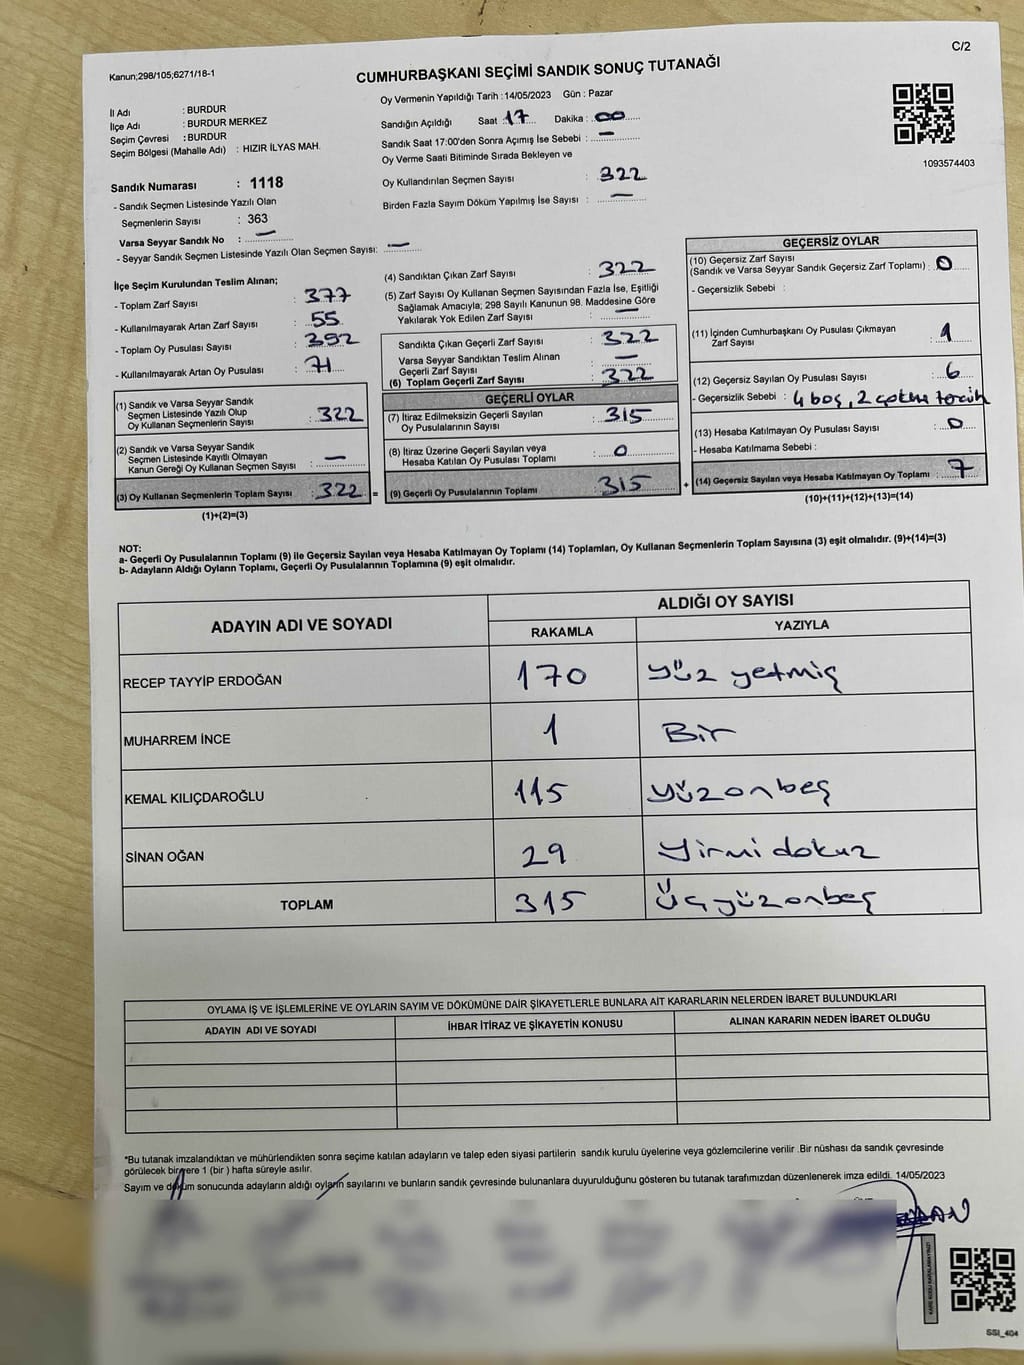 Kanun;298/105;6271/18-1
C/2
CUMHURBAŞKANI SEÇİMİ SANDIK SONUÇ TUTANAĞI
İl Adı : BURDUR
İlçe Adı : BURDUR MERKEZ
Seçim Çevresi : BURDUR
Seçim Bölgesi (Mahalle Adı) : HIZIR İLYAS MAH.
Sandık Numarası : 1118
- Sandık Seçmen Listesinde Yazılı Olan
Seçmenlerin Sayısı : 363
Varsa Seyyar Sandık No : —
- Seyyar Sandık Seçmen Listesinde Yazılı Olan Seçmen Sayısı: —
Oy Vermenin Yapıldığı Tarih : 14/05/2023 Gün : Pazar
Sandığın Açıldığı Saat : 17 Dakika : 00
Sandık Saat 17:00'den Sonra Açımış İse Sebebi : —
Oy Verme Saati Bitiminde Sırada Bekleyen ve
Oy Kullandırılan Seçmen Sayısı : 322
Birden Fazla Sayım Döküm Yapılmış İse Sayısı : —
1093574403
İlçe Seçim Kurulundan Teslim Alınan;
- Toplam Zarf Sayısı : 377
- Kullanılmayarak Artan Zarf Sayısı : 55
- Toplam Oy Pusulası Sayısı : 392
- Kullanılmayarak Artan Oy Pusulası : 71
(1) Sandık ve Varsa Seyyar Sandık
Seçmen Listesinde Yazılı Olup
Oy Kullanan Seçmenlerin Sayısı : 322
(2) Sandık ve Varsa Seyyar Sandık
Seçmen Listesinde Kayıtlı Olmayan
Kanun Gereği Oy Kullanan Seçmen Sayısı : —
(3) Oy Kullanan Seçmenlerin Toplam Sayısı : 322 =
(1)+(2)=(3)
(4) Sandıktan Çıkan Zarf Sayısı : 322
(5) Zarf Sayısı Oy Kullanan Seçmen Sayısından Fazla İse, Eşitliği
Sağlamak Amacıyla; 298 Sayılı Kanunun 98. Maddesine Göre
Yakılarak Yok Edilen Zarf Sayısı : —
Sandıkta Çıkan Geçerli Zarf Sayısı : 322
Varsa Seyyar Sandıktan Teslim Alınan
Geçerli Zarf Sayısı : —
(6) Toplam Geçerli Zarf Sayısı : 322
GEÇERLİ OYLAR
(7) İtiraz Edilmeksizin Geçerli Sayılan
Oy Pusulalarının Sayısı : 315
(8) İtiraz Üzerine Geçerli Sayılan veya
Hesaba Katılan Oy Pusulası Toplamı : 0
(9) Geçerli Oy Pusulalarının Toplamı : 315 +
GEÇERSİZ OYLAR
(10) Geçersiz Zarf Sayısı
(Sandık ve Varsa Seyyar Sandık Geçersiz Zarf Toplamı) : 0
- Geçersizlik Sebebi :
(11) İçinden Cumhurbaşkanı Oy Pusulası Çıkmayan
Zarf Sayısı : 1
(12) Geçersiz Sayılan Oy Pusulası Sayısı : 6
- Geçersizlik Sebebi : 4 boş, 2 çoklu tercih
(13) Hesaba Katılmayan Oy Pusulası Sayısı : 0
- Hesaba Katılmama Sebebi :
(14) Geçersiz Sayılan veya Hesaba Katılmayan Oy Toplamı : 7
(10)+(11)+(12)+(13)=(14)
NOT:
a- Geçerli Oy Pusulalarının Toplamı (9) ile Geçersiz Sayılan veya Hesaba Katılmayan Oy Toplamı (14) Toplamları, Oy Kullanan Seçmenlerin Toplam Sayısına (3) eşit olmalıdır. (9)+(14)=(3)
b- Adayların Aldığı Oyların Toplamı, Geçerli Oy Pusulalarının Toplamına (9) eşit olmalıdır.
ADAYIN ADI VE SOYADI
ALDIĞI OY SAYISI
RAKAMLA YAZIYLA
RECEP TAYYİP ERDOĞAN 170 yüz yetmiş
MUHARREM İNCE 1 Bir
KEMAL KILIÇDAROĞLU 115 yüzonbeş
SİNAN OĞAN 29 yirmi dokuz
TOPLAM 315 Üçyüzonbeş
OYLAMA İŞ VE İŞLEMLERİNE VE OYLARIN SAYIM VE DÖKÜMÜNE DAİR ŞİKAYETLERLE BUNLARA AİT KARARLARIN NELERDEN İBARET BULUNDUKLARI
ADAYIN ADI VE SOYADI İHBAR İTİRAZ VE ŞİKAYETİN KONUSU ALINAN KARARIN NEDEN İBARET OLDUĞU
*Bu tutanak imzalandıktan ve mühürlendikten sonra seçime katılan adayların ve talep eden siyasi partilerin sandık kurulu üyelerine veya gözlemcilerine verilir .Bir nüshası da sandık çevresinde
görülecek bir yere 1 (bir ) hafta süreyle asılır.
Sayım ve döküm sonucunda adayların aldığı oyların sayılarını ve bunların sandık çevresinde bulunanlara duyurulduğunu gösteren bu tutanak tarafımızdan düzenlenerek imza edildi. 14/05/2023
SSI_404